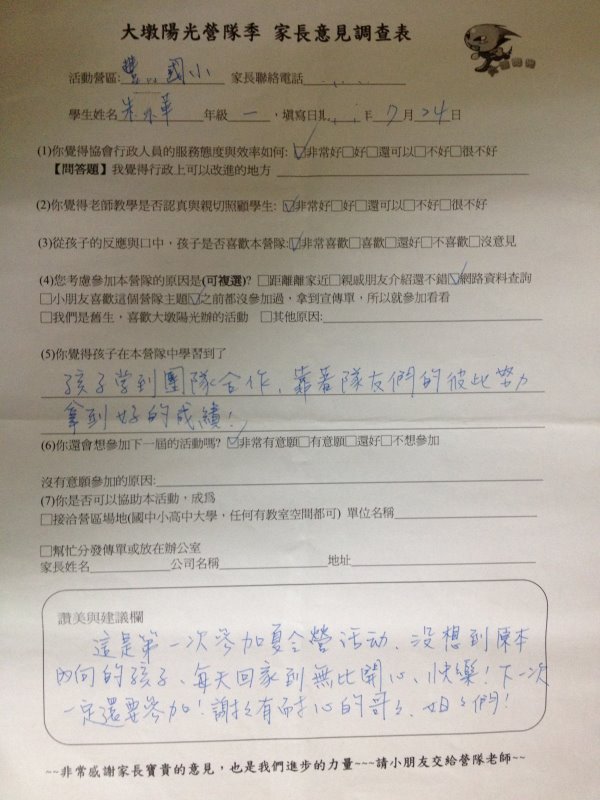 大墩陽光營隊季 家長意見調查表
活動營區: 豐 國小 家長聯絡電話
學生姓名 朱 華 年級 一 , 填寫日 7月24日
(1)你覺得協會行政人員的服務態度與效率如何: ☑非常好□好□還可以□不好□很不好
【問答題】我覺得行政上可以改進的地方
(2)你覺得老師教學是否認真與親切照顧學生: ☑非常好□好□還可以□不好□很不好
(3)從孩子的反應與口中，孩子是否喜歡本營隊:☑非常喜歡□喜歡□還好□不喜歡□沒意見
(4)您考慮參加本營隊的原因是(可複選)? □距離離家近□親戚朋友介紹還不錯☑網路資料查詢
□小朋友喜歡這個營隊主題☑之前都沒參加過，拿到宣傳單，所以就參加看看
□我們是舊生，喜歡大墩陽光辦的活動 □其他原因:
(5)你覺得孩子在本營隊中學習到了
孩子學到團隊合作、靠著隊友們的彼此努力
拿到好的成績!
(6)你還會想參加下一屆的活動嗎? ☑非常有意願□有意願□還好□不想參加
沒有意願參加的原因:
(7)你是否可以協助本活動，成為
□接洽營區場地(國中小高中大學，任何有教室空間都可) 單位名稱
□幫忙分發傳單或放在辦公室
家長姓名 公司名稱 地址
讚美與建議欄
這是第一次參加夏令營活动、没想到原本
內向的孩子、每天回家到無比開心、快樂!下一次
一定還要參加!謝謝有耐心的哥哥、姐姐們!
~~非常感謝家長寶貴的意見，也是我們進步的力量~~~請小朋友交給營隊老師~~